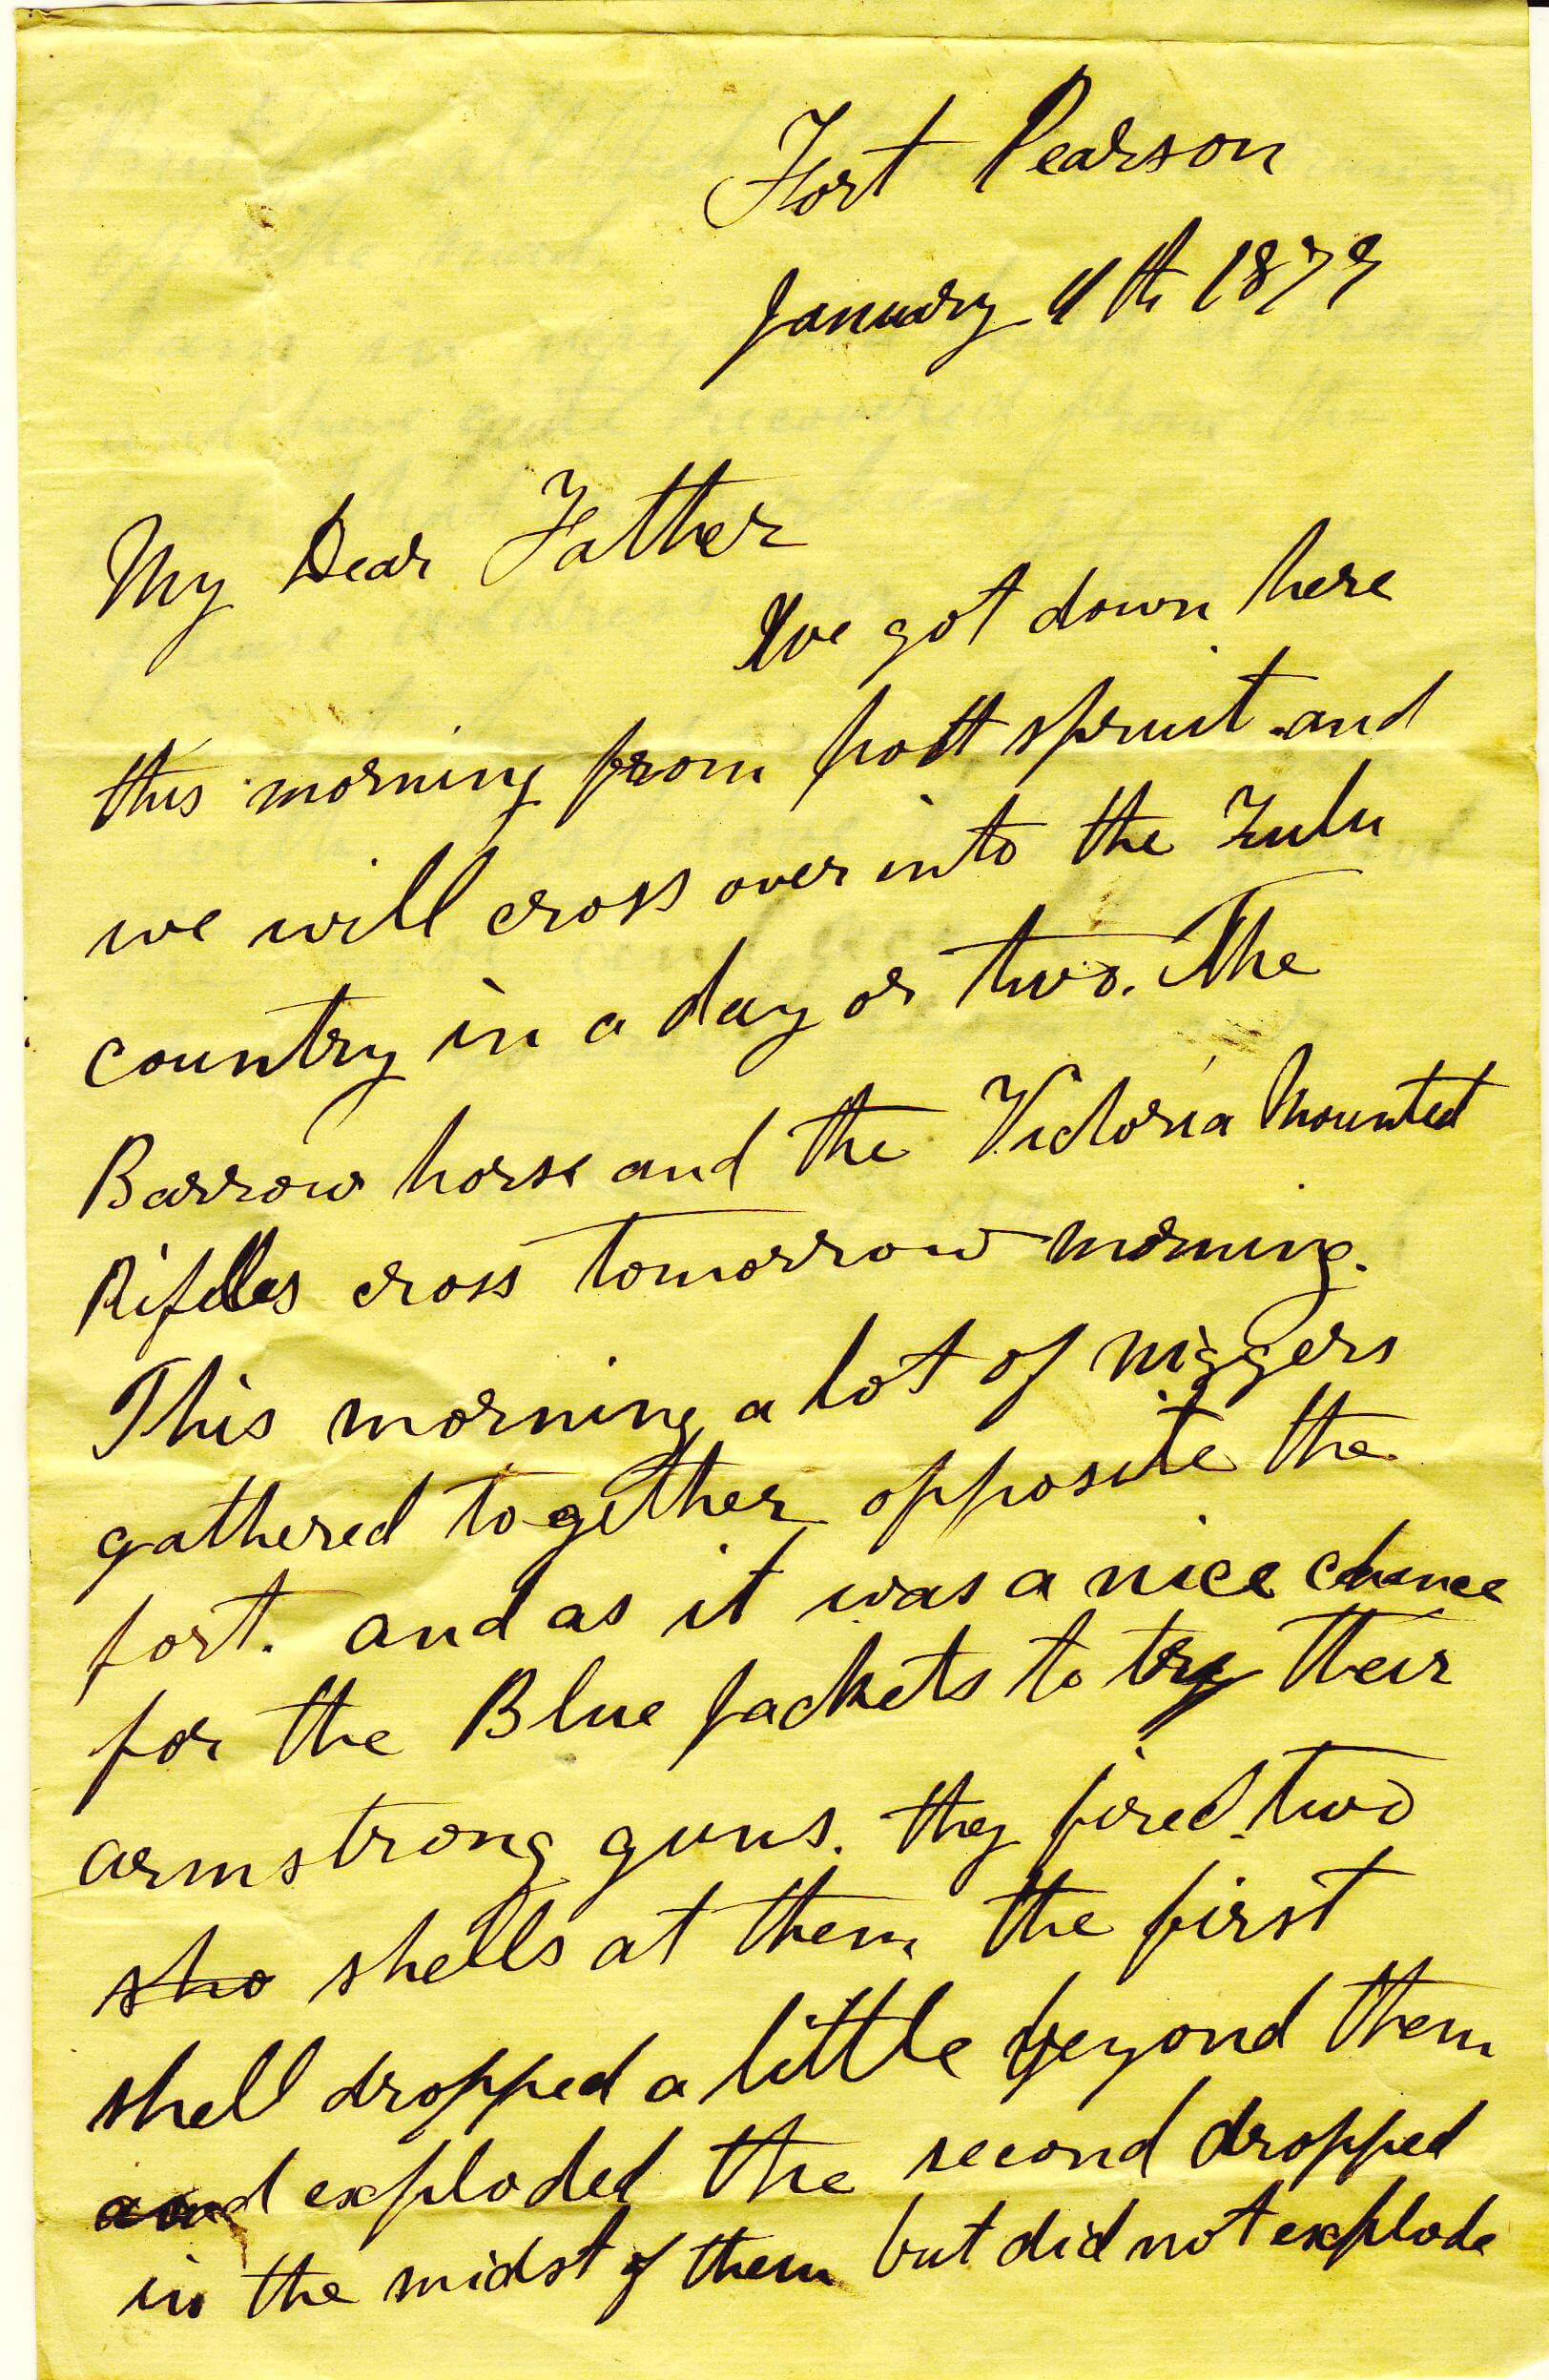 Fort Pearson
January 11th 1879
My Dear Father
We got down here
this morning from pott spruit and
we will cross over into the Zulu
country in a day or two. The
Barrow horse and the Victoria Mounted
Rifelles cross tomorrow morning.
This morning a lot of niggers
gathered together opposite the
fort. and as it was a nice chance
for the Blue Jackets to try their
armstrong guns. they fired two
sho shells at them the first
shell dropped a little beyond them
and exploded the second dropped
in the midst of them but did not explode